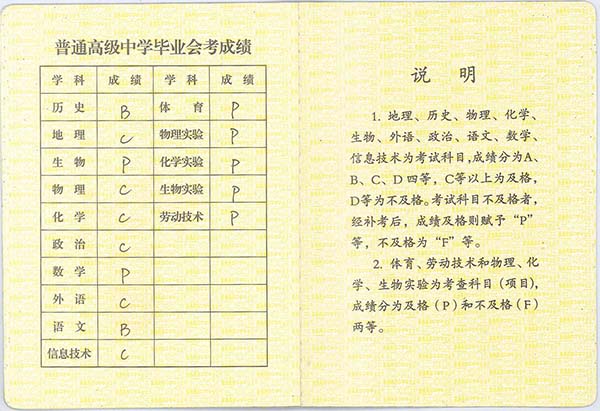 普通高级中学毕业会考成绩
学科 成绩 学科 成绩
历史 B 体育 P
地理 C 物理实验 P
生物 P 化学实验 P
物理 C 生物实验 P
化学 C 劳动技术 P
政治 C
数学 P
外语 C
语文 B
信息技术 C
说明
1. 地理、历史、物理、化学、
生物、外语、政治、语文、数学、
信息技术为考试科目,成绩分为A、
B、C、D四等，C等以上为及格，
D等为不及格。考试科目不及格者，
经补考后，成绩及格则赋予“P”
等，不及格为“F”等。
2. 体育、劳动技术和物理、化
学、生物实验为考查科目(项目),
成绩分为及格(P)和不及格(F)
两等。